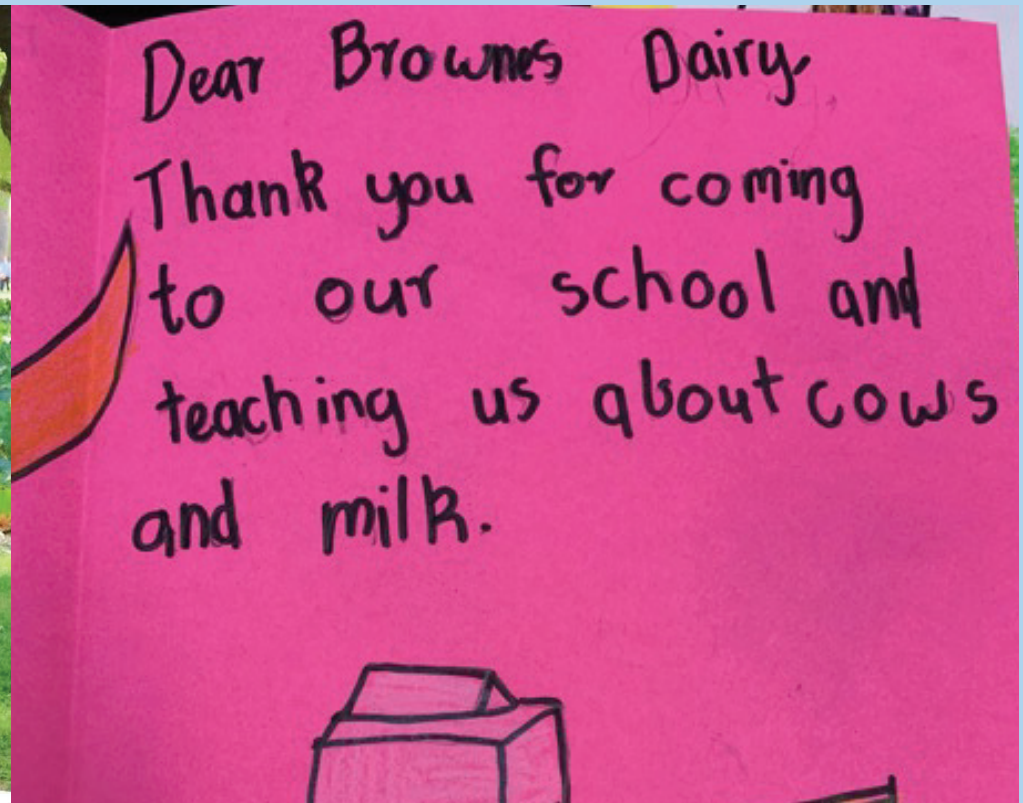 Dear Brownes Dairy,
Thank you for coming
to our school and
teaching us about cows
and milk.